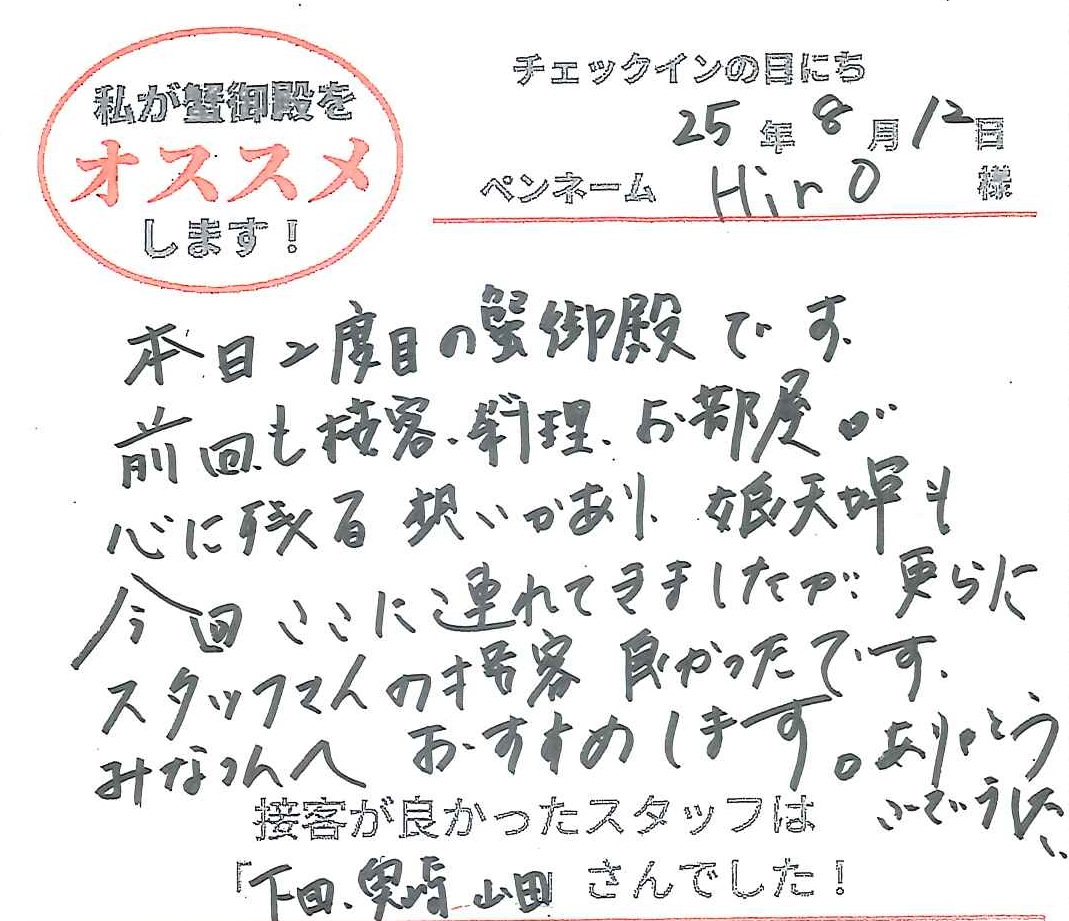 私が蟹御殿を
オススメ
します!
チェックインの日にち
25年8月12日
ペンネーム Hiro 様
本日2度目の蟹御殿です.
前回も接客、料理、お部屋が
心に残る想いがあり、娘夫婦も
今回ここに連れてきましたが更らに
スタッフさんの接客良かったです.
みなさんへ おすすめします。ありがとう
ございました
接客が良かったスタッフは
「下田、 山田」さんでした!